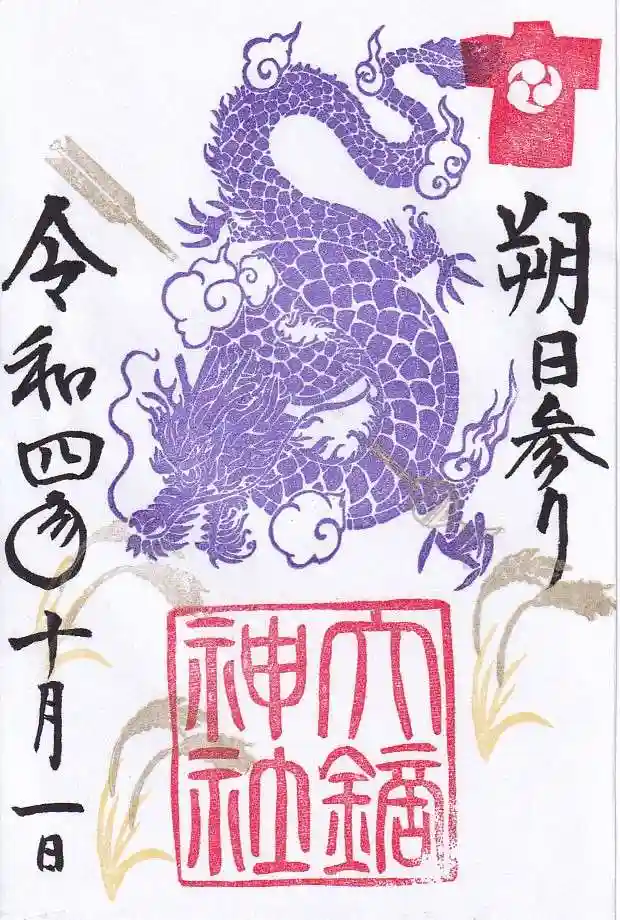 朔日参り
大鏑
神社
令和四年十月一日